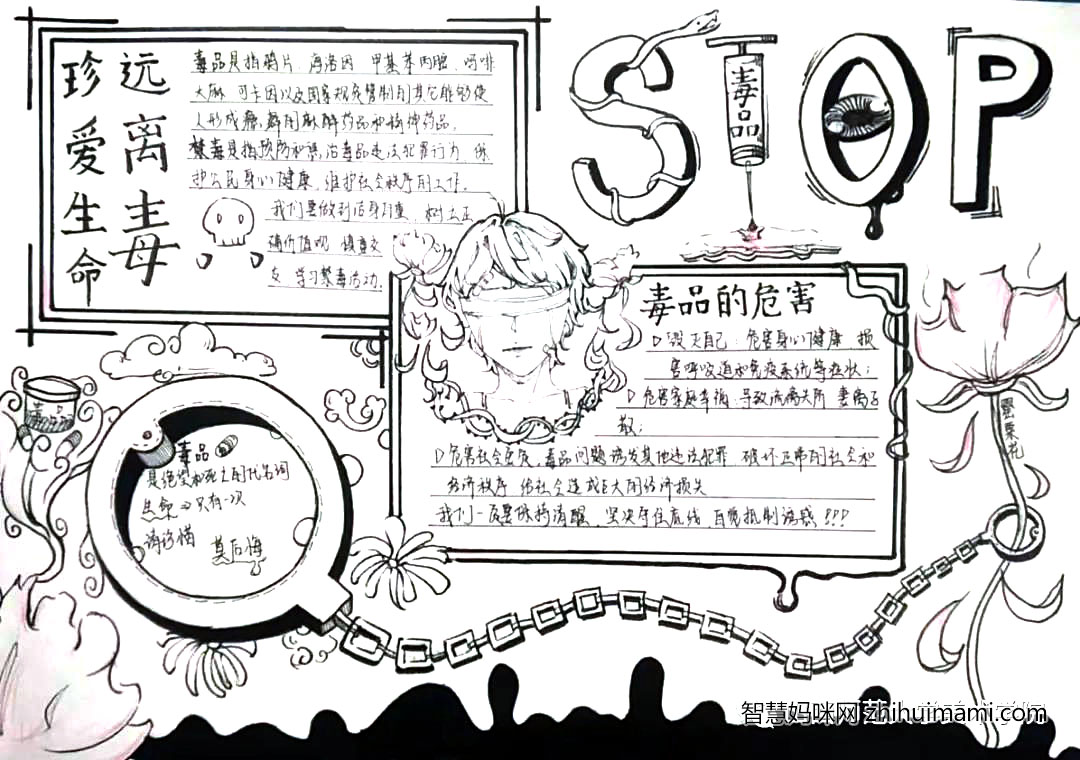 远离毒
珍爱生命
毒品是指鸦片、海洛因 甲基苯丙胺、吗啡
大麻 可卡因以及国家规定管制的其它能够使
人形成瘾癖的麻醉药品和精神药品。
禁毒是指预防和惩治毒品违法犯罪行为 保
护公民身心健康，维护社会秩序的工作。
我们要做到洁身自重， 树立正
确价值观 慎重交
友 学习禁毒活动.
STOP
毒品
毒品的危害
毁灭自己：危害身心健康 损
害呼吸道和免疫系统等症状；
危害家庭幸福，导致流离失所 妻离子
散；
危害社会安定，毒品问题诱发其他违法犯罪 破坏正常的社会和
经济秩序 给社会造成巨大的经济损失
我们一定要保持清醒， 坚决守住底线，自觉抵制诱惑!!!
罂粟花
毒品
是绝望和死亡的代名词
生命 只有一次
请珍惜 莫后悔
智慧妈咪网 zhihuimami.com